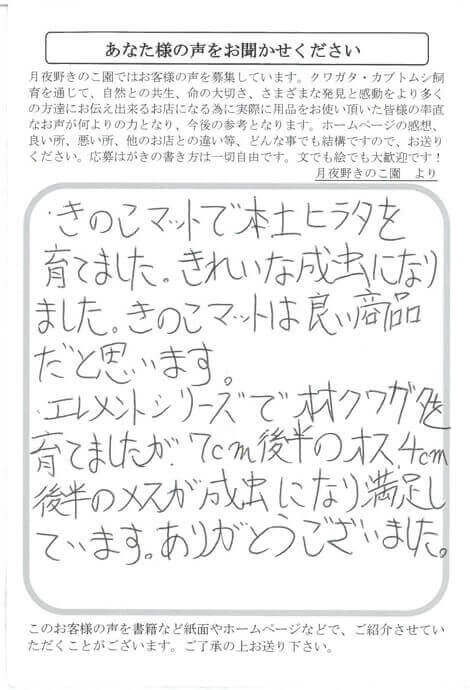 あなた様の声をお聞かせください
月夜野きのこ園ではお客様の声を募集しています。クワガタ・カブトムシ飼
育を通じて、自然との共生、命の大切さ、さまざまな発見と感動をより多く
の方達にお伝え出来るお店になる為に実際に用品をお使い頂いた皆様の率直
なお声が何よりの力となり、今後の参考となります。ホームページの感想、
良い所、悪い所、他のお店との違い等、どんな事でも結構ですので、お送り
ください。応募はがきの書き方は一切自由です。文でも絵でも大歓迎です！
月夜野きのこ園　より
・きのこマットで本土ヒラタを
育てました。きれいな成虫になり
ました。きのこマットは良い商品
だと思います。
・エレメントシリーズでオオクワガタを
育てましたが、7cm後半のオス、4cm
後半のメスが成虫になり満足し
ています。ありがとうございました。
このお客様の声を書籍など紙面やホームページなどで、ご紹介させてい
ただくことがございます。ご了承の上お送り下さい。